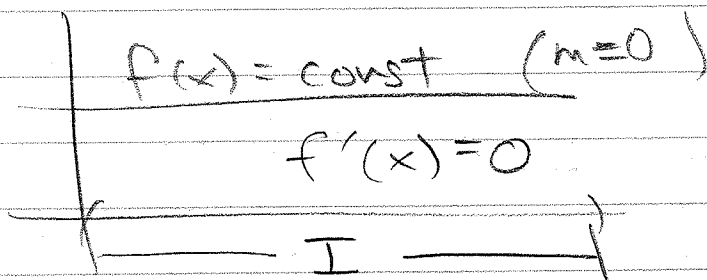 f(x) = const (m=0)
f'(x) = 0
I